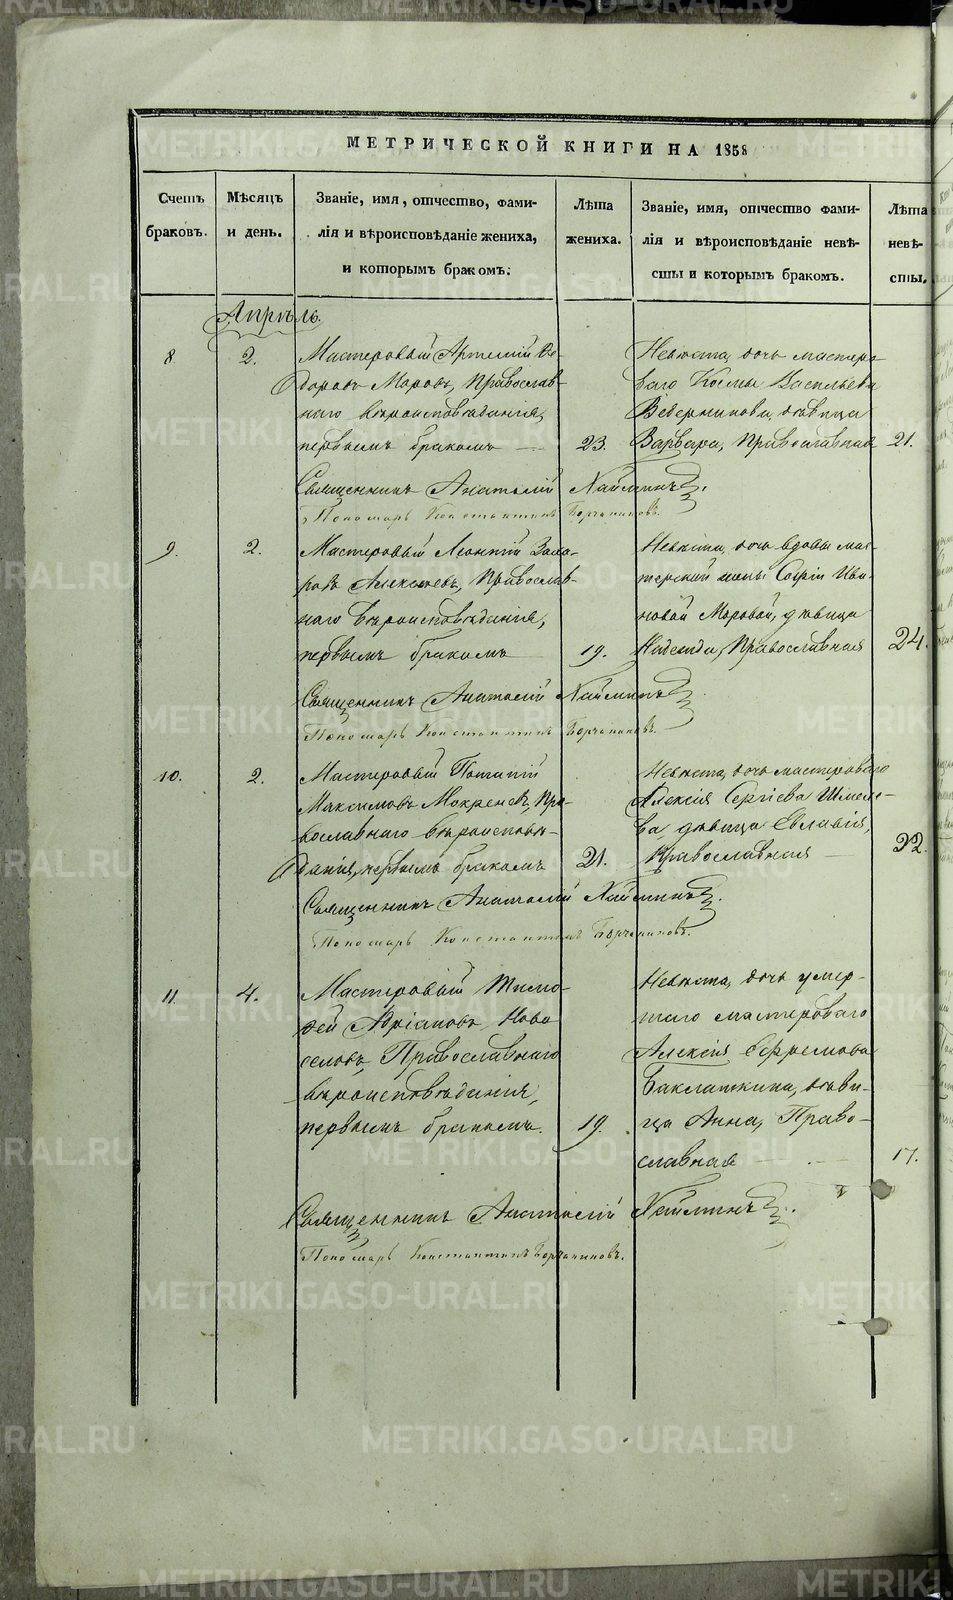 МЕТРИЧЕСКОЙ КНИГИ НА 1858
Счетъ браковъ.
Мѣсяцъ и день.
Званіе, имя, отчество, фами-
лія и вѣроисповѣданіе жениха,
и которымъ бракомъ.
Лѣта жениха.
Званіе, имя, отчество фами-
лія и вѣроисповѣданіе невѣ-
сты и которымъ бракомъ.
Лѣта невѣ-
сты.
Апрѣль.
8
2.
Мастеровый Артемій Ѳе-
доровъ Моровъ, Православ-
наго вѣроисповѣданія,
первымъ бракомъ
23.
Невѣста, дочь мастеро-
ваго Космы Васильева
Ведерникова, дѣвица
Варвара, Православная
21.
Священникъ Анатолій Хайминъ.
Пономарь Константинъ Борчаниновъ.
9.
2.
Мастеровый Леонтій Заха-
ровъ Алексѣевъ, Православ-
наго вѣроисповѣданія,
первымъ бракомъ
19.
Невѣста, дочь вдовы мас-
терской жены Софіи Ива-
новой Моровой, дѣвица
Надежда, Православная
24.
Священникъ Анатолій Хайминъ
Пономарь Константинъ Борчаниновъ.
10.
2.
Мастеровый Потапій
Максимовъ Мокренсв, Пра-
вославнаго вѣроисповѣ-
данія, первымъ бракомъ
21.
Невѣста, дочь мастероваго
Алексія Сергіева Шмеле-
ва, дѣвица Евлавія,
Православная
22.
Священникъ Анатолій Хайминъ.
Пономарь Константинъ Борчаниновъ.
11.
4.
Мастеровый Тимо-
ѳей Адріановъ Ново
селовъ, Православнаго
вѣроисповѣданія,
первымъ бракомъ.
19.
Невѣста, дочь умер-
шаго мастероваго
Алексія Ефремова
Баклашкина, дѣви-
ца Анна, Право-
славная
17.
Священникъ Анатолій Хайминъ.
Пономарь Константинъ Борчаниновъ.
METRIKI.GASO-URAL.RU